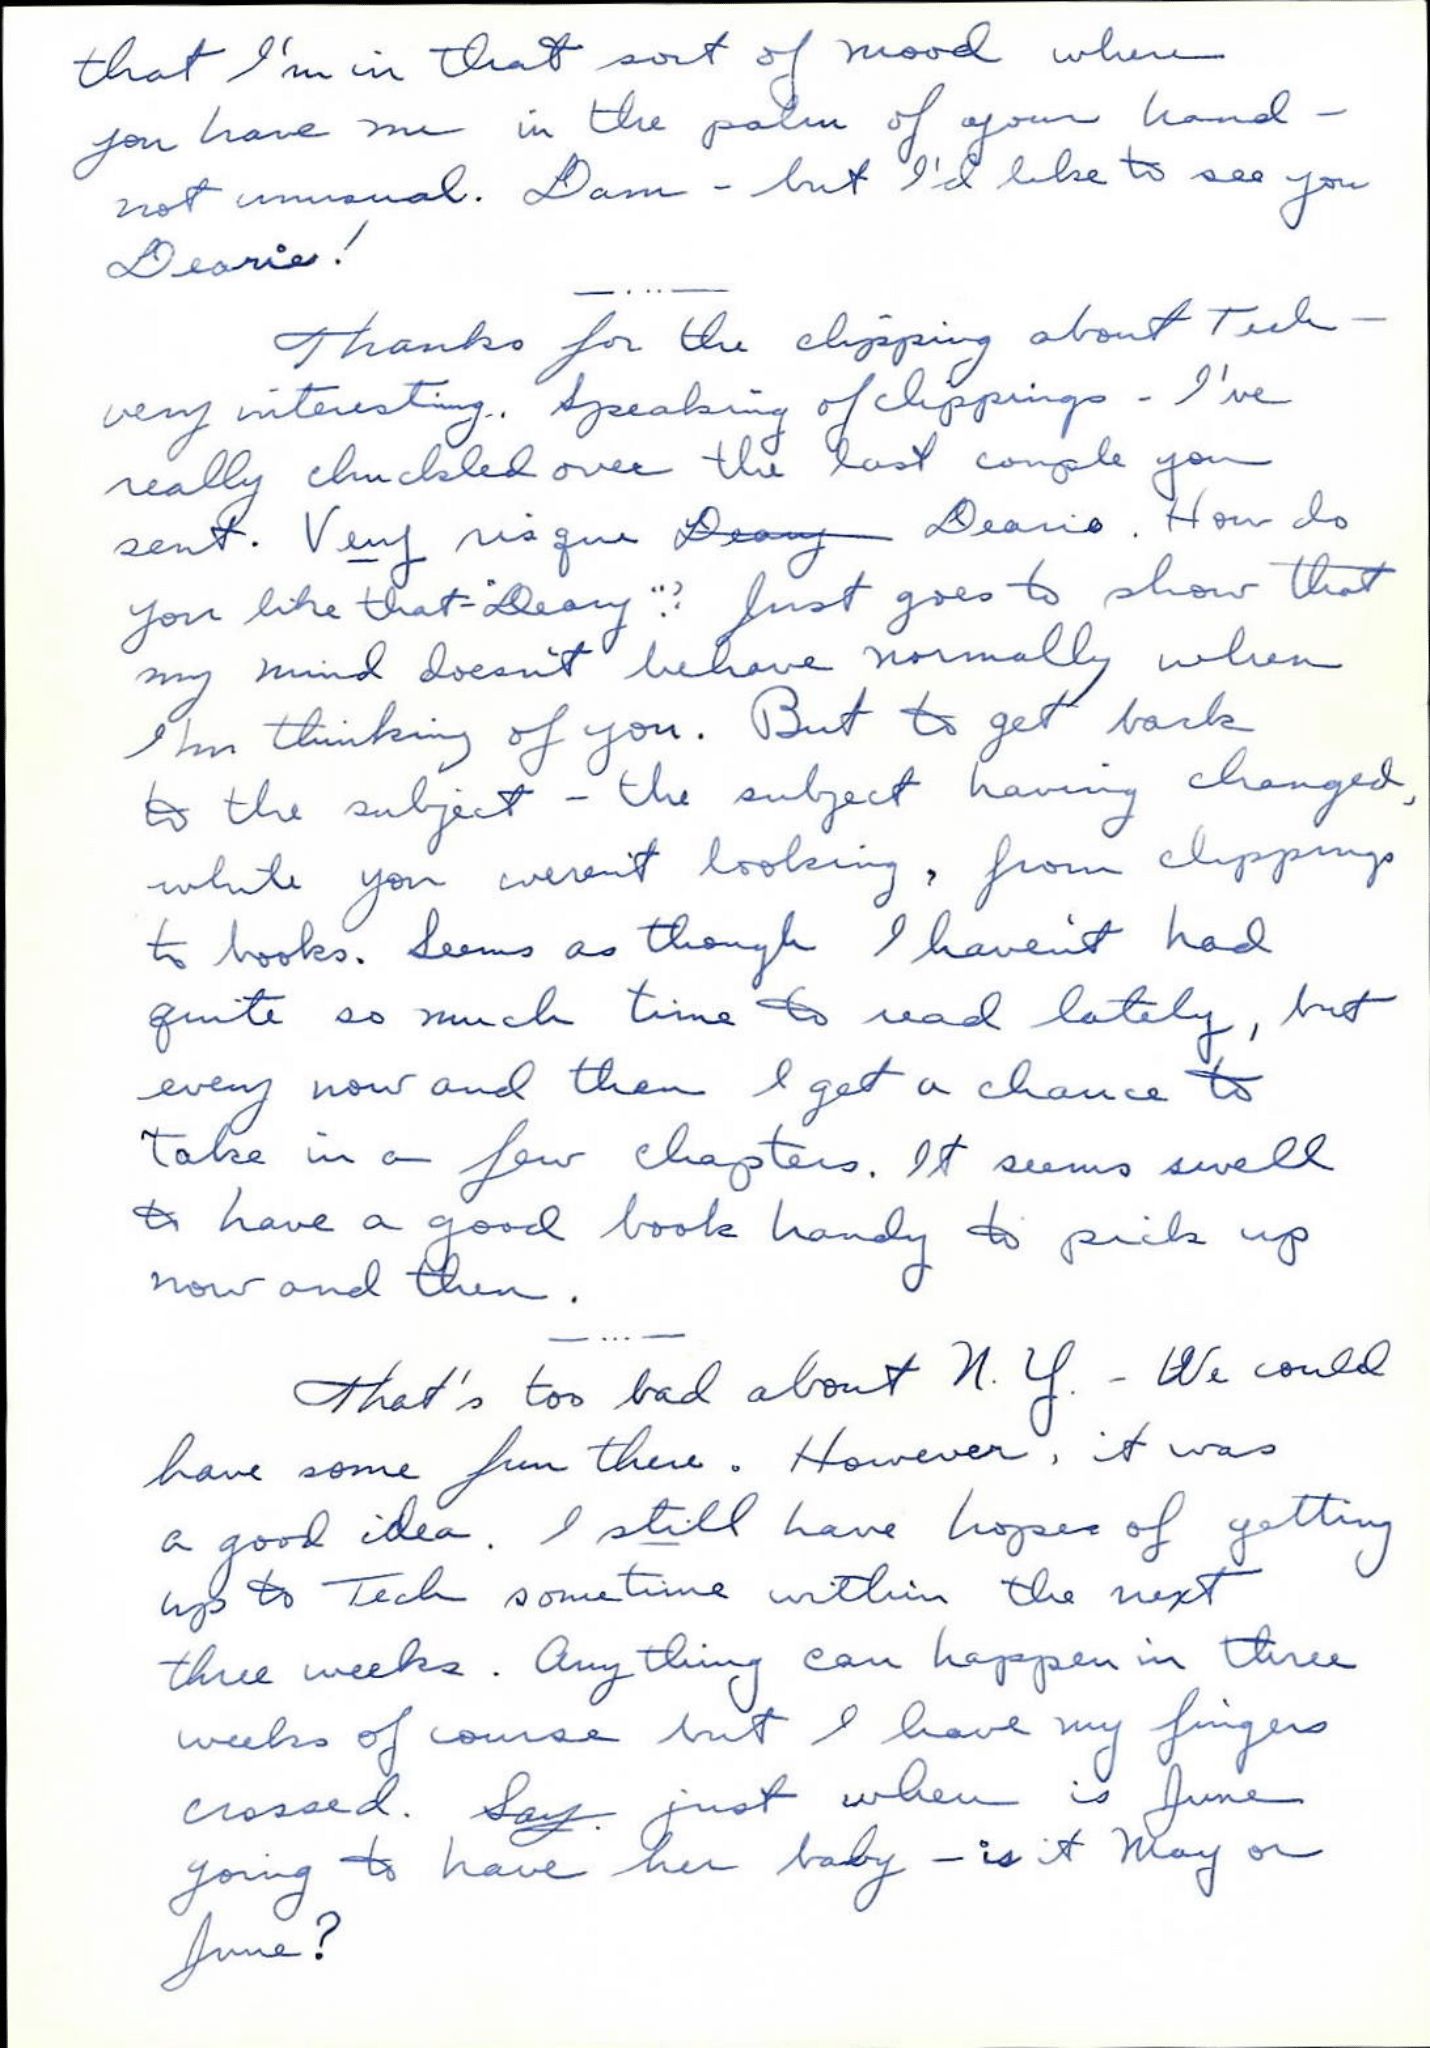 that I'm in that sort of mood where
you have me in the palm of your hand -
not unusual. Dam - but I'd like to see you
Dearie!
Thanks for the clipping about Tech -
very interesting. Speaking of clippings - I've
really chuckled over the last couple you
sent. Very risque Deary Dearie. How do
you like that - "Deary"? Just goes to show that
my mind doesn't behave normally when
I'm thinking of you. But to get back
to the subject - the subject having changed,
while you weren't looking, from clippings
to books. Seems as though I haven't had
quite so much time to read lately, but
every now and then I get a chance to
take in a few chapters. It seems swell
to have a good book handy to pick up
now and then.
That's too bad about N.Y. - We could
have some fun there. However, it was
a good idea. I still have hopes of getting
up to Tech sometime within the next
three weeks. Anything can happen in three
weeks of course but I have my fingers
crossed. Say just when is June
going to have her baby - is it May or
June?